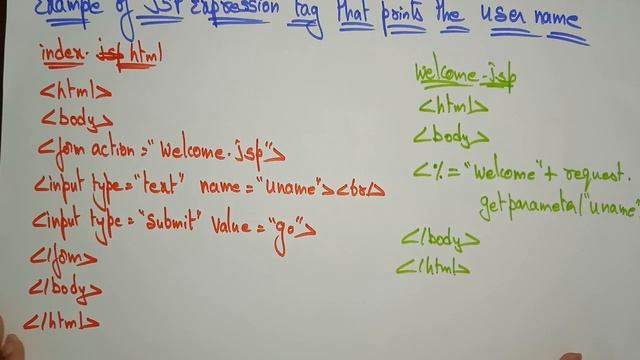 Example of JSP Expression tag that points the user name
index. jsp html
<html>
<body>
<form action="welcome.jsp">
<input type="text" name="uname"><br/>
<input type="submit" value="go">
</form>
</body>
</html>
welcome.jsp
<html>
<body>
<%="welcome"+ request.
getparameter("uname"
</body>
</html>